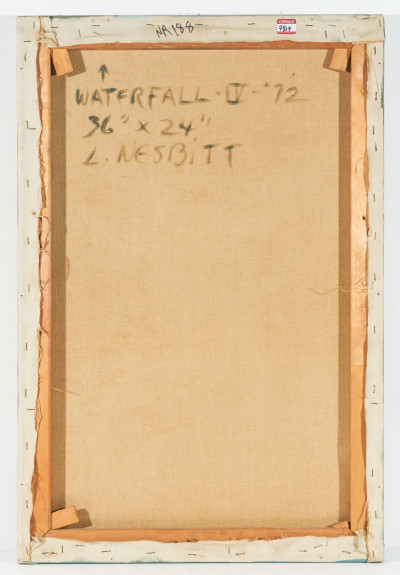 NA188
↑
WATERFALL-IV-'72
36" X 24"
L. NESBITT